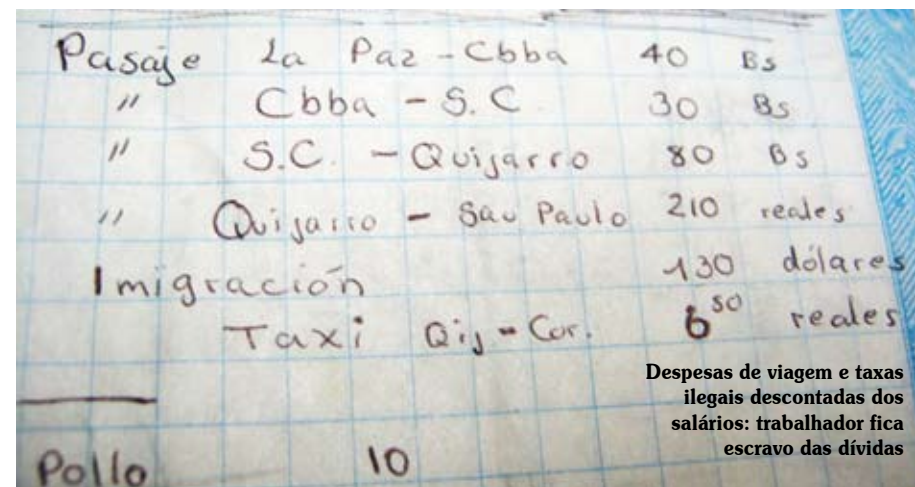 Pasaje La Paz - Cbba 40 Bs
" Cbba - S.C. 30 Bs
" S.C. - Quijarro 80 Bs
" Quijarro - Sau Paulo 210 reales
Imigración 130 dólares
Taxi Qij - Cor. 6 50 reales
Despesas de viagem e taxas
ilegais descontadas dos
salários: trabalhador fica
escravo das dívidas
Pollo 10